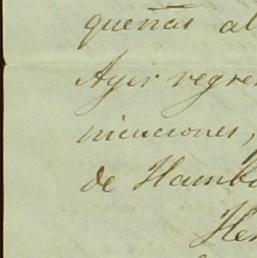 queñas al
Ayer regre
nicaciones,
de Hambu
Her